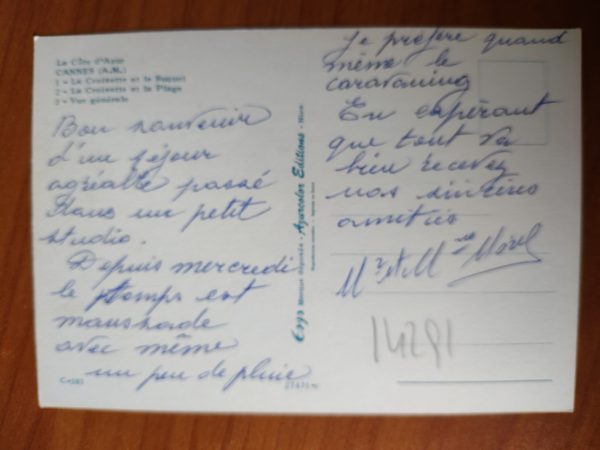 La Côte d'Azur
CANNES (A.-M.)
1 - La Croisette et le Suquet
2 - La Croisette et la Plage
3 - Vue générale
Bon souvenir
d'un séjour
agréable passé
dans un petit
studio.
Depuis mercredi
le temps est
maussade
avec même
un peu de pluie
Je préfère quand
même le
caravaning
En espérant
que tout va
bien recevez
nos sincères
amitiés
Mr et Mme Morel
14291
Azurcolor Editions - Nice